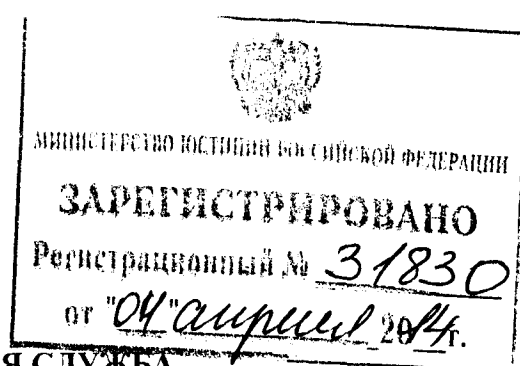 МИНИСТЕРСТВО ЮСТИЦИИ РОССИЙСКОЙ ФЕДЕРАЦИИ
ЗАРЕГИСТРИРОВАНО
Регистрационный № 31830
от "04" апреля 2014г.
Я СЛУЖБА